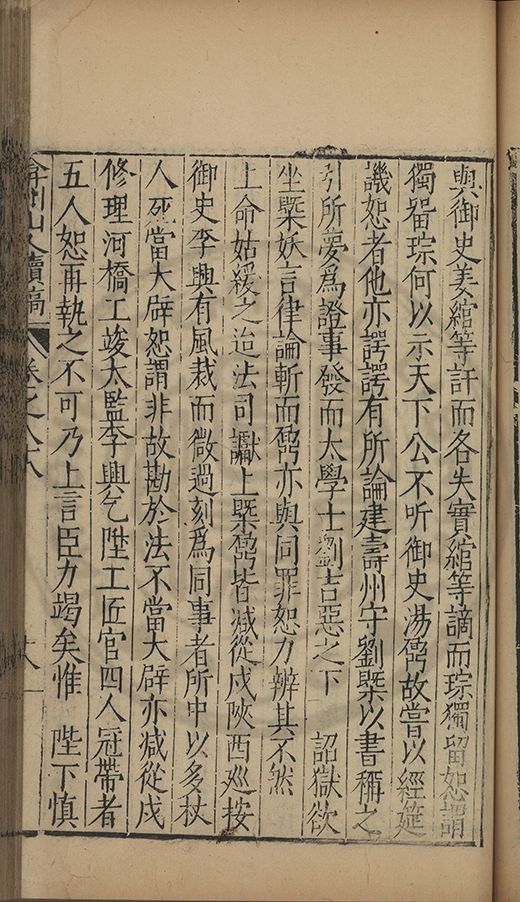 與御史姜綰等訐而各失實綰等謫而琮獨留恕謂
獨畱琮何以示天下公不听御史湯鼐故嘗以經筵
譏恕者他亦諤諤有所論建壽州守劉槩以書稱之
引所夢爲證事發而大學士劉吉惡之下　詔獄欲
坐槩妖言律論斬而鼐亦與同罪恕力辨其不然
上命姑緩之迨法司讞上槩鼐皆減從戍陝西巡按
御史李興有風裁而微過刻爲同事者所中以多杖
人死當大辟恕謂非故勘於法不當大辟亦減從戍
修理河橋工竣太監李興乞陞工匠官四人冠帶者
五人恕再執之不可乃上言臣力竭矣惟　陛下慎
弇州山人續稿　卷之八十八